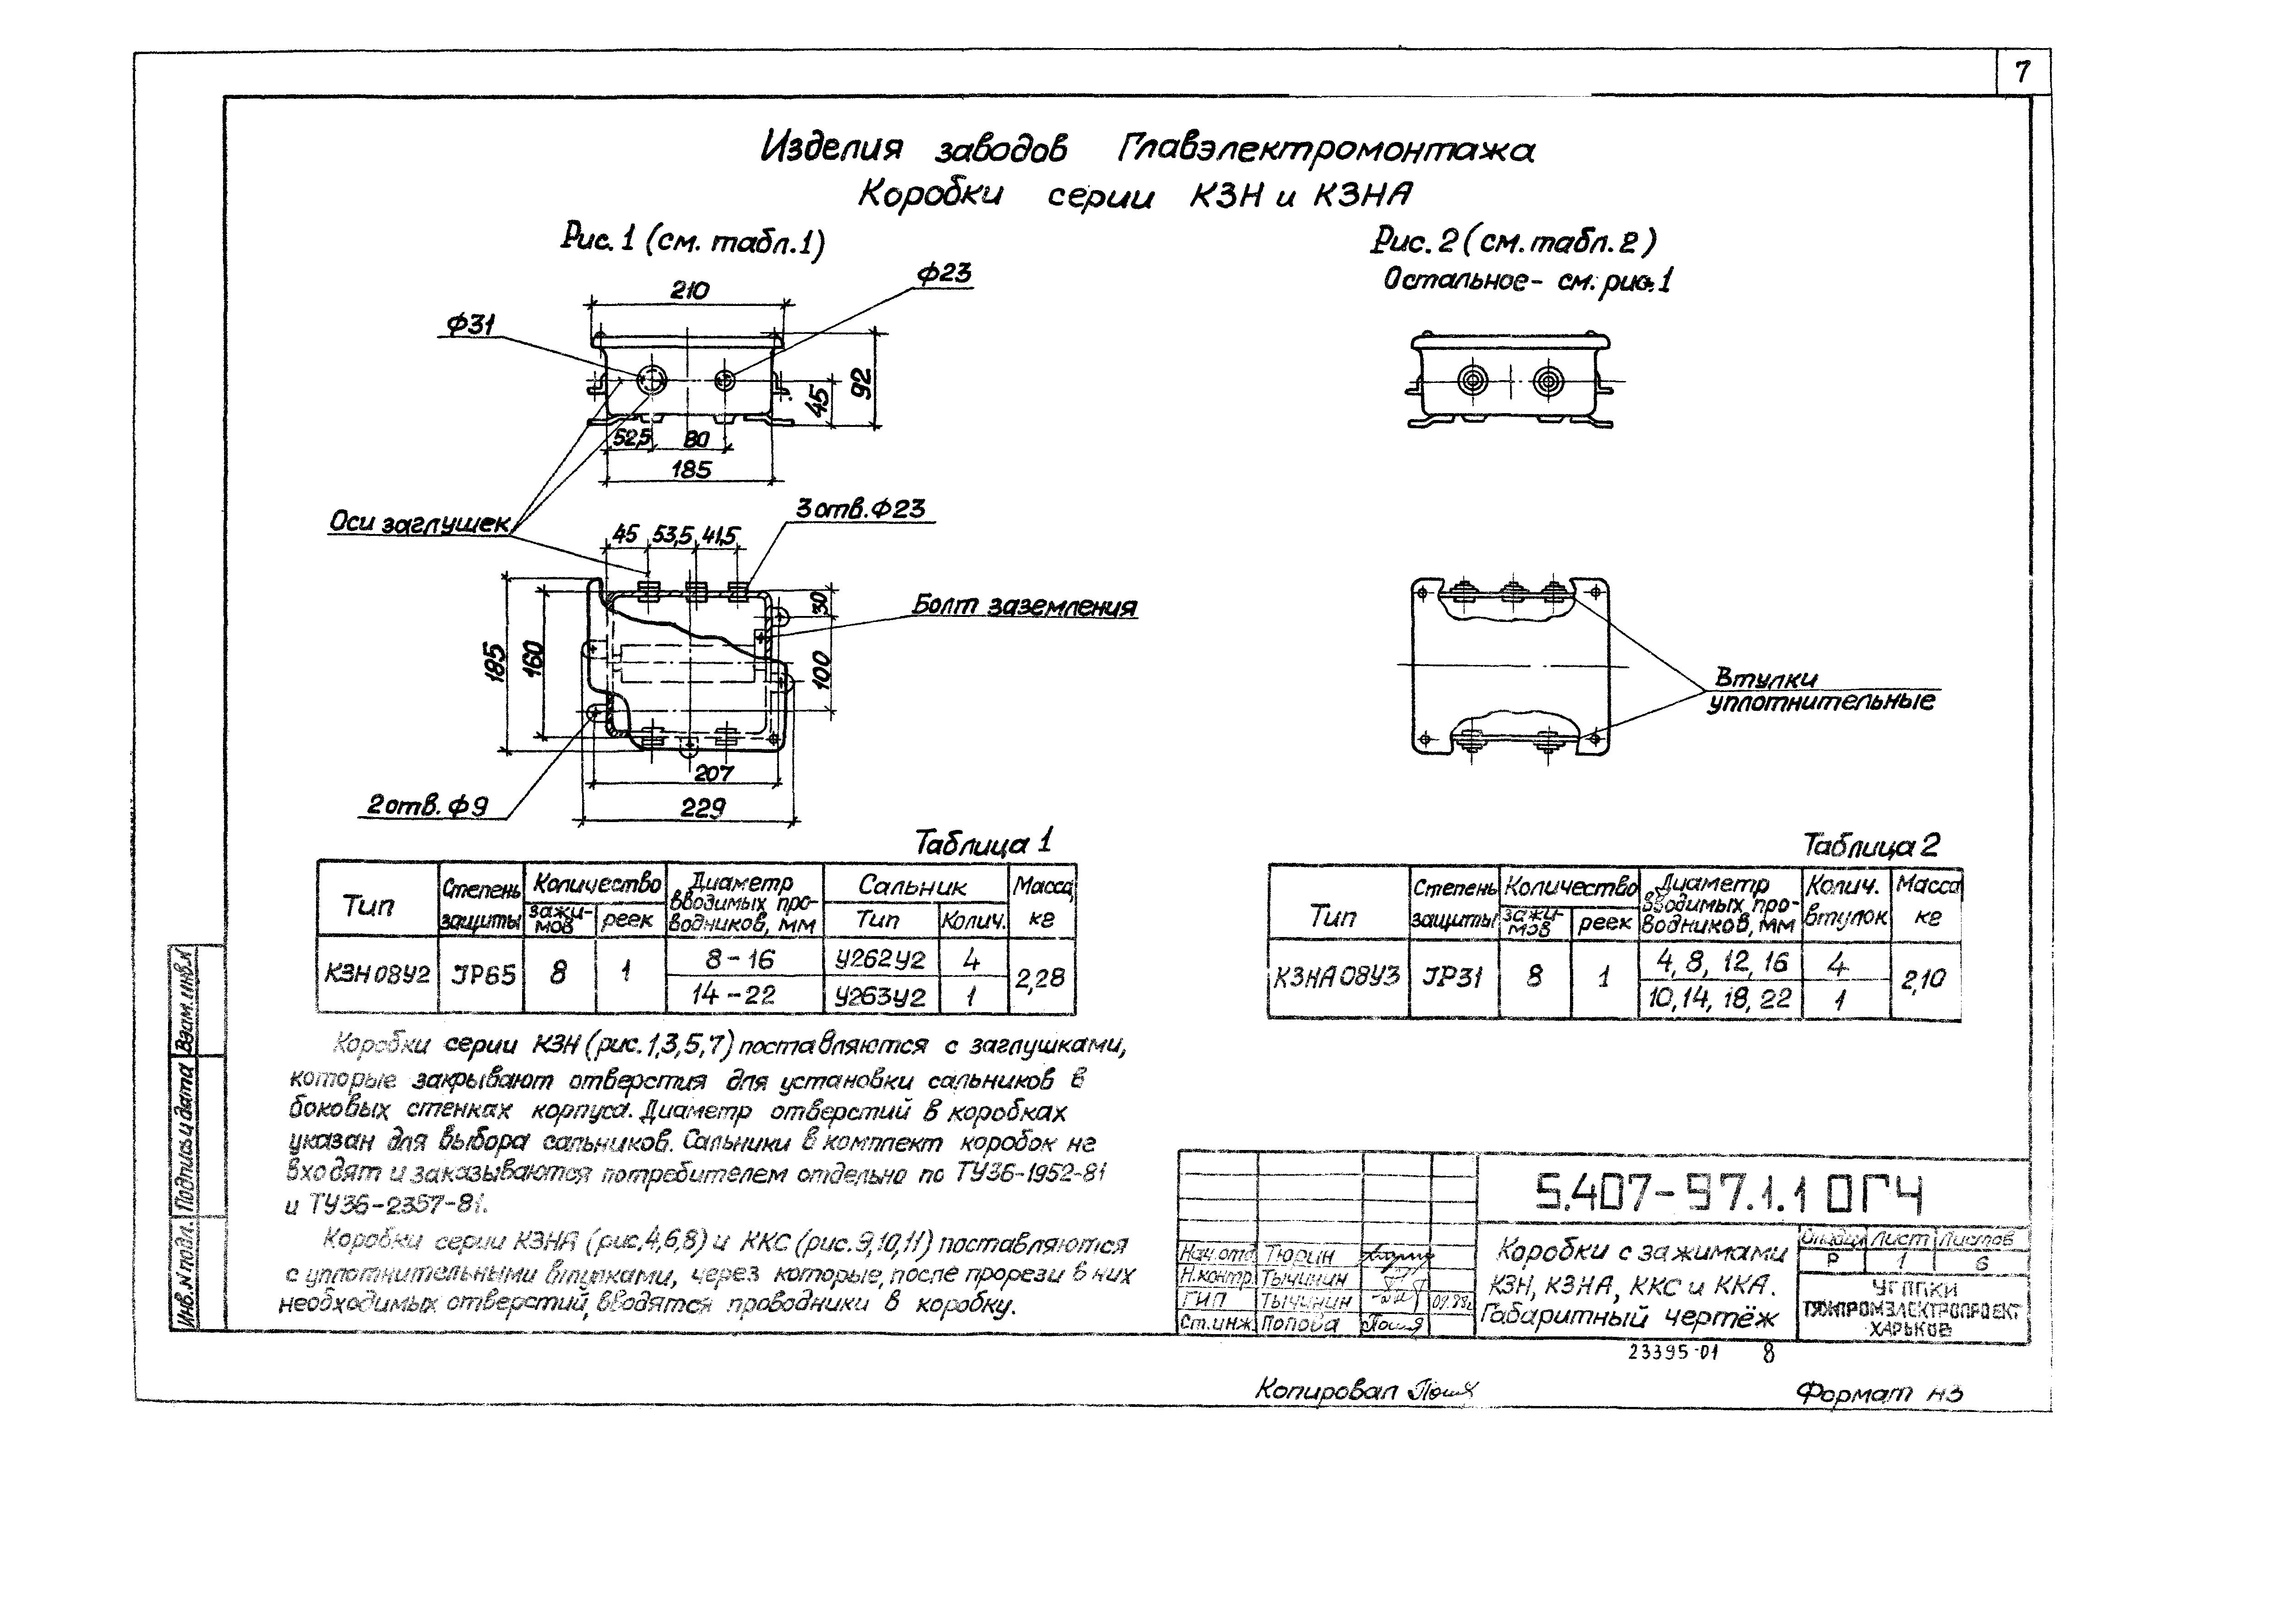 7
Изделия заводов Главэлектромонтажа
Коробки серии КЗН и КЗНА
Рис. 1 (см. табл. 1)
Рис. 2 (см. табл. 2)
Остальное - см. рис. 1
Ф23
210
Ф31
92
45
52,5
80
185
Оси заглушек
3 отв. Ф23
45
53,5
41,5
30
Болт заземления
185
160
100
Втулки
уплотнительные
207
2 отв. Ф9
229
Таблица 1
Тип
Степень
защиты
Количество
зажи-
мов
реек
Диаметр
вводимых про-
водников, мм
Сальник
Тип
Колич.
Масса
кг
КЗН08У2
IP65
8
1
8-16
У262У2
4
2,28
14-22
У263У2
1
Таблица 2
Тип
Степень
защиты
Количество
зажи-
мов
реек
Диаметр
вводимых про-
водников, мм
Колич.
втулок
Масса
кг
КЗНА08У3
IP31
8
1
4, 8, 12, 16
4
2,10
10, 14, 18, 22
1
Коробки серии КЗН (рис. 1,3,5,7) поставляются с заглушками,
которые закрывают отверстия для установки сальников в
боковых стенках корпуса. Диаметр отверстий в коробках
указан для выбора сальников. Сальники в комплект коробок не
входят и заказываются потребителем отдельно по ТУ36-1952-81
и ТУ36-2357-81.
Коробки серии КЗНА (рис. 4,6,8) и ККС (рис. 9,10,11) поставляются
с уплотнительными втулками, через которые, после прорези в них
необходимых отверстий, вводятся проводники в коробку.
Инв.N подл.
Подпись и дата
Взам. инв.N
5.407-97.1.1 ОГЧ
Нач.отд. Тюрин
Н.контр. Тычинин
ГИП Тычинин
Ст.инж. Попова
Коробки с зажимами
КЗН, КЗНА, ККС и ККА.
Габаритный чертёж
Стадия Лист Листов
Р 1 6
ТЯЖПРОМЭЛЕКТРОПРОЕКТ
ХАРЬКОВ
23395-01 8
Копировал
Формат А3